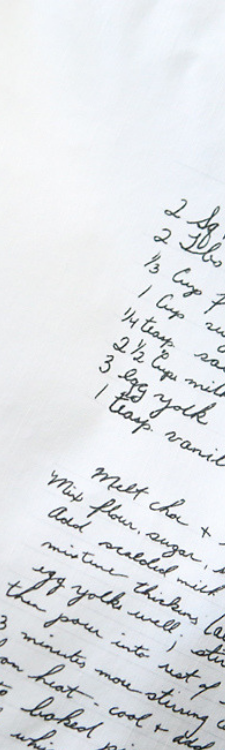 2 Sq
2 Tbs
1/3 Cup f
1 Cup su
1/4 teasp. sa
2 1/2 Cups milk
3 egg yolk
1 teasp. vanil
Melt cho +
Mix flour, sugar,
Add scalded milk
mixture thickens
egg yolks well,
then pour into rest of
3 minutes more stirring
heat - cool + add
baked